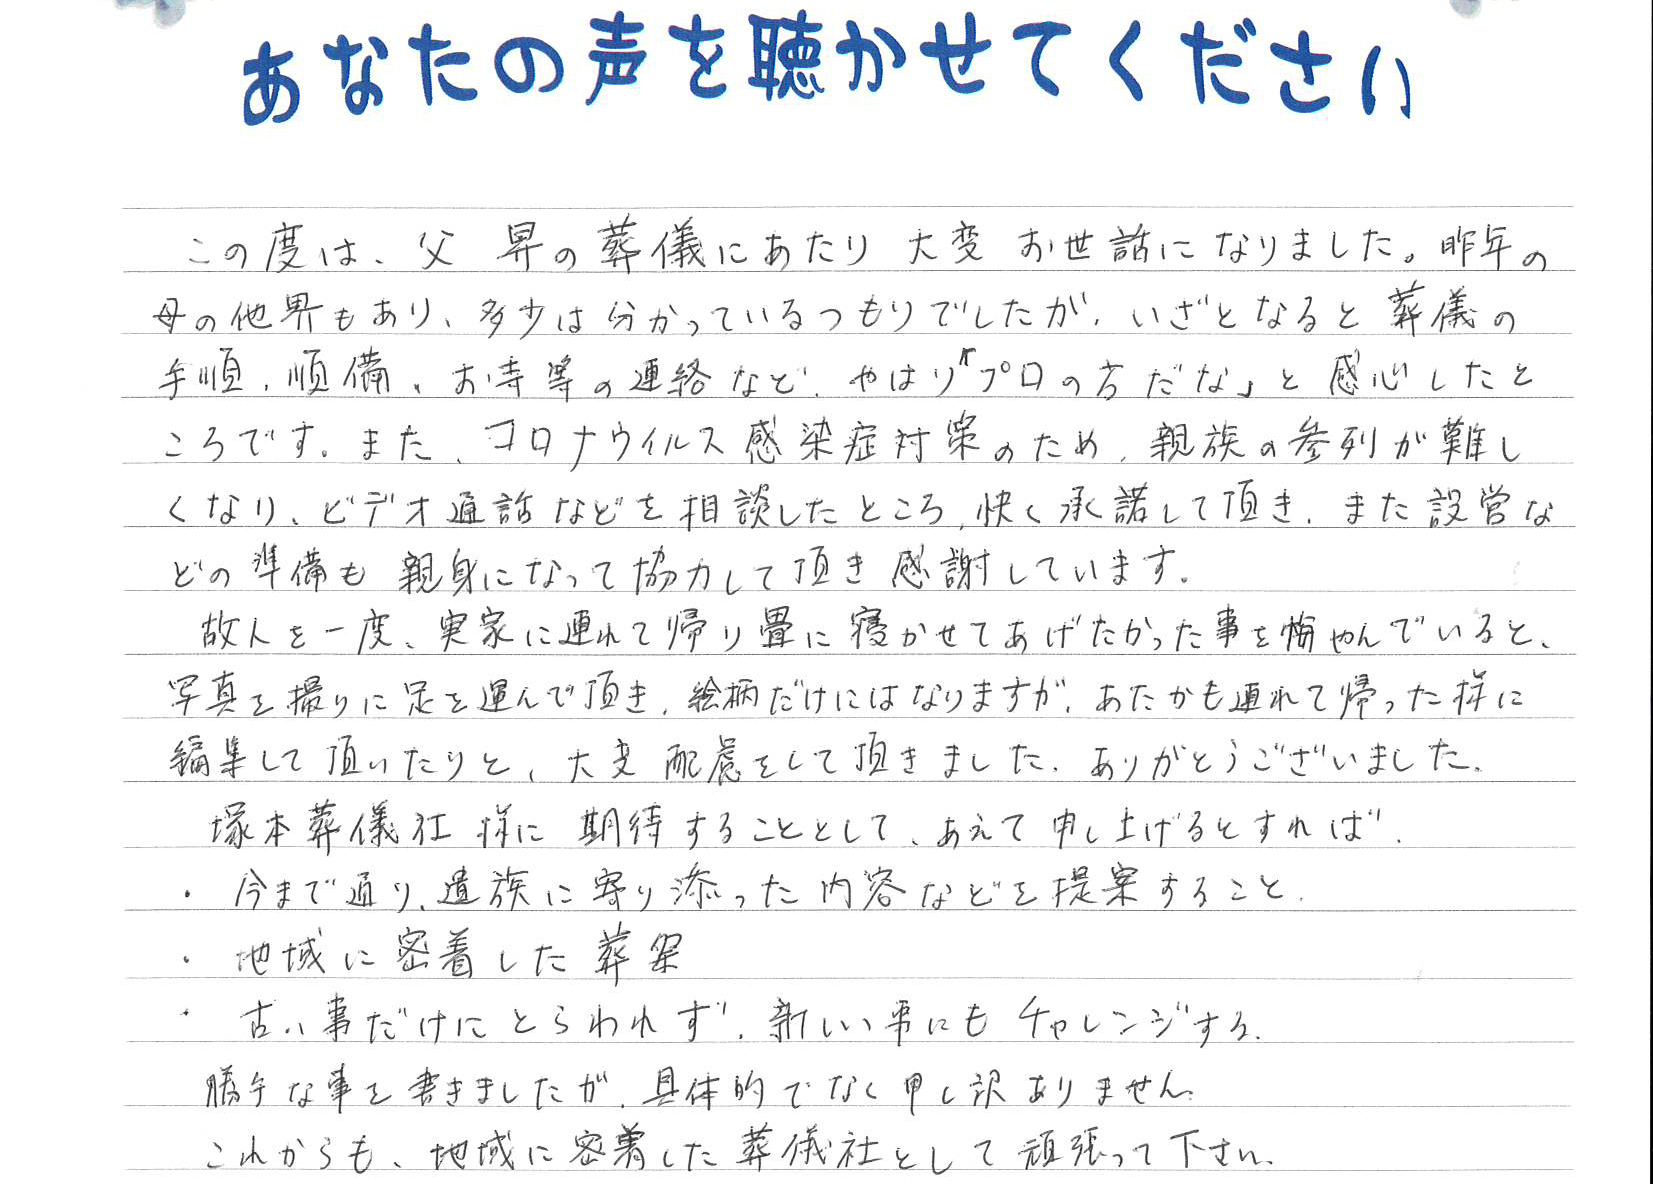 あなたの声を聴かせてください
この度は、父 昇の葬儀にあたり 大変 お世話になりました。昨年の
母の他界もあり、多少は分かっているつもりでしたが、いざとなると葬儀の
手順、順備、お寺等の連絡など、やはり「プロの方だな」と感心したと
ころです。また、コロナウイルス感染症対策のため、親族の参列が難し
くなり、ビデオ通話などを相談したところ、快く承諾して頂き、また設営な
どの準備も親身になって協力して頂き感謝しています。
故人を一度、実家に連れて帰り畳に寝かせてあげたかった事を悔やんでいると、
写真を撮りに足を運んで頂き、絵柄だけにはなりますが、あたかも連れて帰った様に
編集して頂いたりと、大変 配慮をして頂きました。ありがとうございました。
塚本葬儀社 様に 期待することとして、あえて申し上げるとすれば、
・今まで通り、遺族に寄り添った内容などを提案すること。
・地域に密着した葬祭
・古い事だけにとらわれず、新しい事にもチャレンジする。
勝手な事を書きましたが、具体的でなく申し訳ありません。
これからも、地域に密着した葬儀社として頑張って下さい。